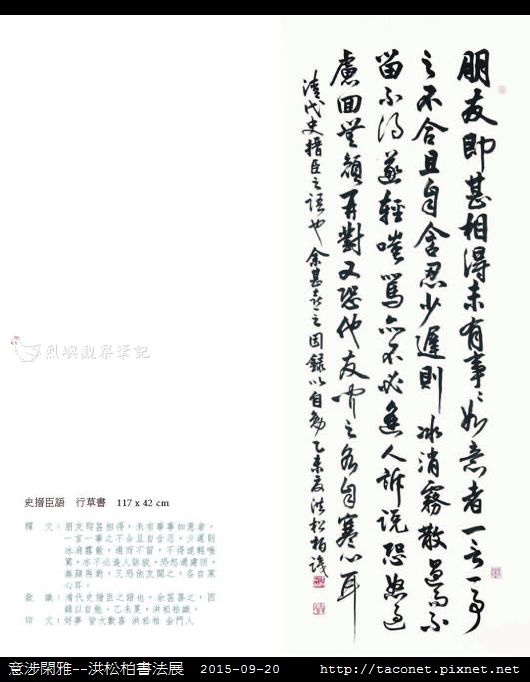 朋友即甚相得未有事〻如意者一言一事
之不合且自含忍少遲則冰消霧散過而不
留不得遂輕嗤罵亦不必逢人訴說恐怒過
慮回無顏再對又恐他友聞之各自寒心耳
清代史搢臣之語也余甚喜之因錄以自勉乙未夏洪松柏識
烈嶼觀察筆記
史搢臣語　行草書　117 x 42 cm
釋　文：朋友即甚相得，未有事事如意者。
一言一事之不合且自含忍，少遲則
冰消霧散，過而不留，不得遂輕嗤
罵，亦不必逢人訴說，恐怒過慮回，
無顏再對，又恐他友聞之，各自寒
心耳。
款　識：清代史搢臣之語也，余甚喜之，因
錄以自勉。乙未夏，洪松柏識。
印　文：好夢 皆大歡喜 洪松柏 金門人
意涉閑雅--洪松柏書法展　2015-09-20　http://taconet.pixnet.net